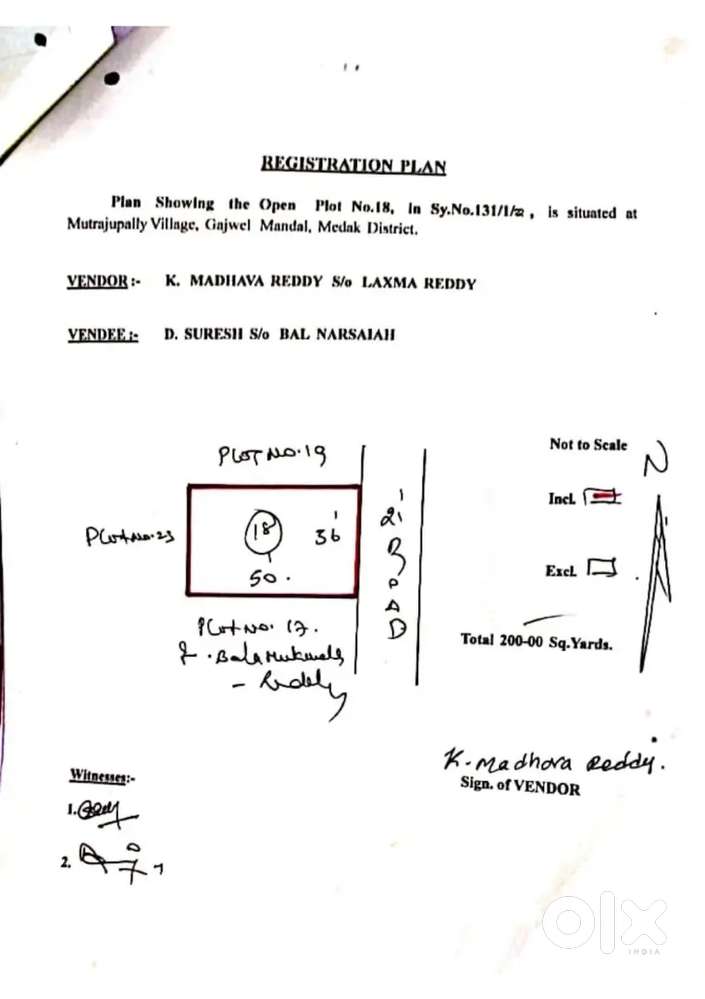 REGISTRATION PLAN
Plan Showing the Open Plot No.18, in Sy.No.131/1/2, is situated at
Mutrajupally Village, Gajwel Mandal, Medak District.
VENDOR :- K. MADHAVA REDDY S/o LAXMA REDDY
VENDEE :- D. SURESH S/o BAL NARSAIAH
Not to Scale
N
PLOT NO. 19
Incl.
Plot No. 23
18
36'
50.
21' ROAD
Excl.
Plot No. 17.
Reddy
Total 200-00 Sq.Yards.
K. Madhava Reddy.
Sign. of VENDOR
Witnesses:-
1.
2.
olx
INDIA